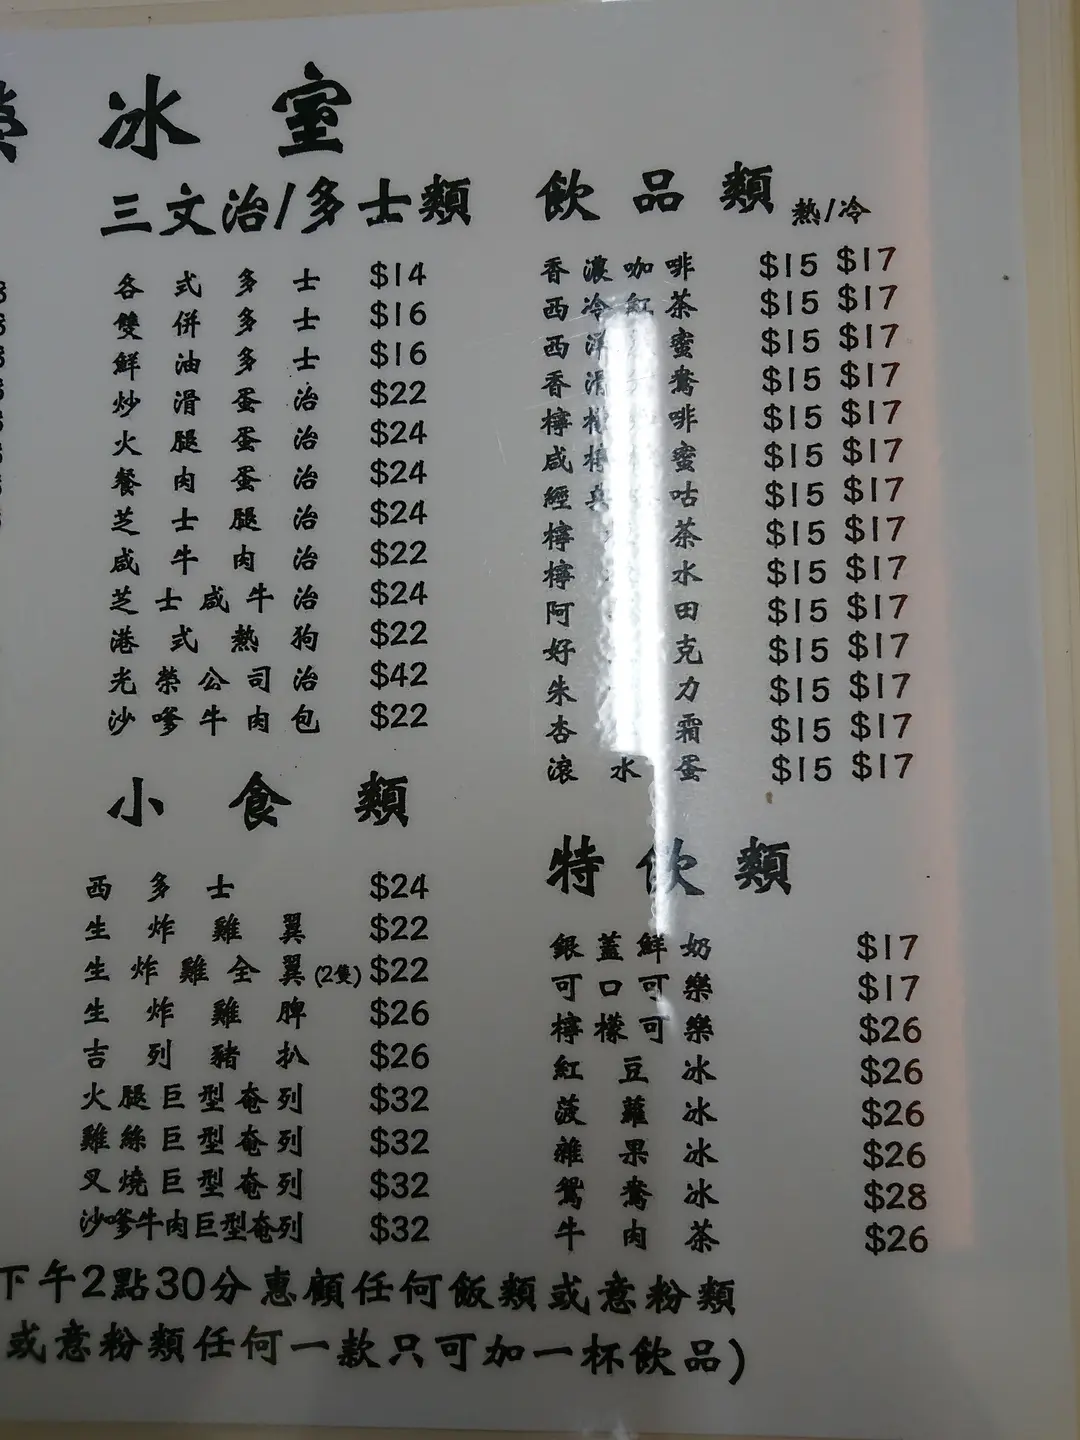 冰室
三文治/多士類
各式多士 $14
雙併多士 $16
鮮油多士 $16
炒滑蛋治 $22
火腿蛋治 $24
餐肉蛋治 $24
芝士腿治 $24
咸牛肉治 $22
芝士咸牛治 $24
港式熱狗 $22
光榮公司治 $42
沙嗲牛肉包 $22
小食類
西多士 $24
生炸雞翼 $22
生炸雞全翼(2隻) $22
生炸雞脾 $26
吉列豬扒 $26
火腿巨型奄列 $32
雞絲巨型奄列 $32
叉燒巨型奄列 $32
沙嗲牛肉巨型奄列 $32
飲品類 熱/冷
香濃咖啡 $15 $17
西冷紅茶 $15 $17
西洋 蜜 $15 $17
香滑 鴦 $15 $17
檸 啡 $15 $17
咸檸 蜜 $15 $17
經典 咕 $15 $17
檸 茶 $15 $17
檸 水 $15 $17
阿 田 $15 $17
好 克 $15 $17
朱 力 $15 $17
杏 霜 $15 $17
滾水蛋 $15 $17
特飲類
銀蓋鮮奶 $17
可口可樂 $17
檸檬可樂 $26
紅豆冰 $26
菠蘿冰 $26
雜果冰 $26
鴛鴦冰 $28
牛肉茶 $26
下午2點30分惠顧任何飯類或意粉類
或意粉類任何一款只可加一杯飲品)